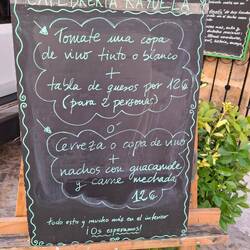 CAFEBRERÍA RAYUELA
Tomate una copa
de vino tinto o blanco
+
tabla de quesos por 12€
(para 2 personas)
ó
Cerveza o copa de vino
+
nachos con guacamole
y carne mechada
12€
todo esto y mucho más en el interior
¡Os esperamos!